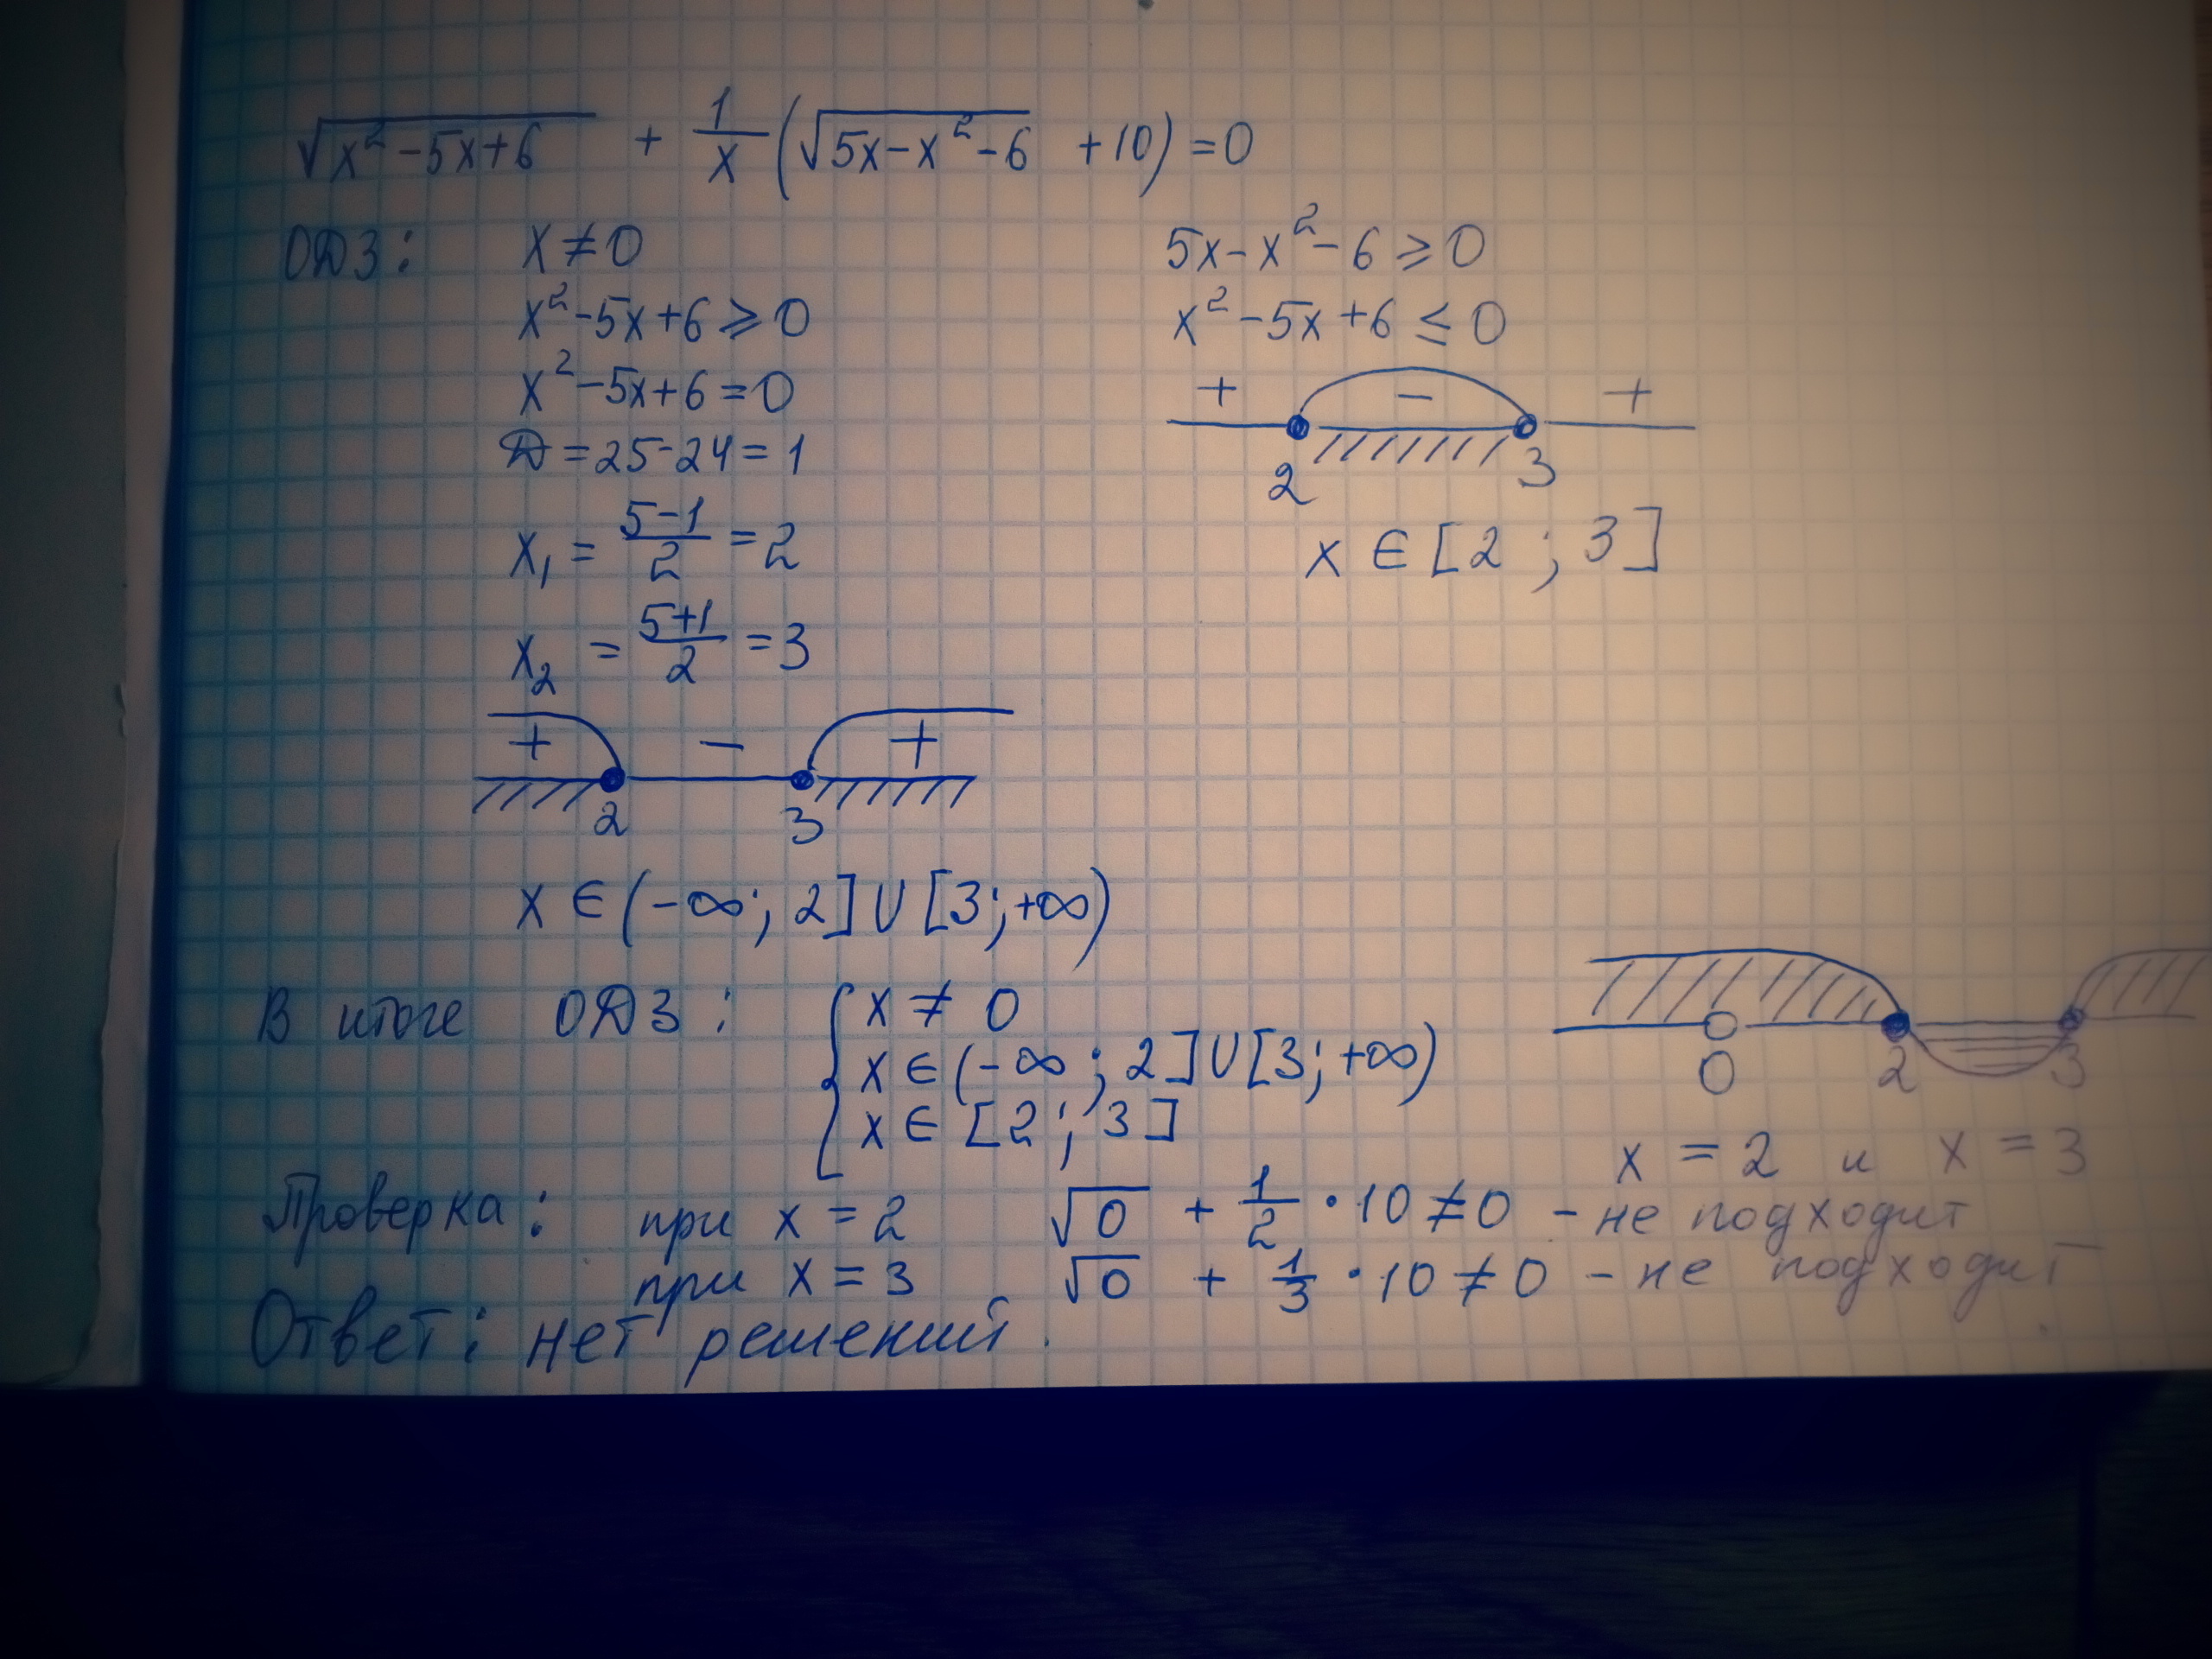 √(x² - 5x + 6) + 1/x (√(5x - x² - 6) + 10) = 0
ОДЗ: x ≠ 0
x² - 5x + 6 ⩾ 0
x² - 5x + 6 = 0
D = 25 - 24 = 1
x₁ = (5 - 1)/2 = 2
x₂ = (5 + 1)/2 = 3
+ - +
2 3
x ∈ (-∞; 2] ∪ [3; +∞)
5x - x² - 6 ⩾ 0
x² - 5x + 6 ≤ 0
+ - +
2 3
x ∈ [2; 3]
В итоге ОДЗ: { x ≠ 0
x ∈ (-∞; 2] ∪ [3; +∞)
x ∈ [2; 3]
0 2 3
x = 2 и x = 3
Проверка: при x = 2 √0 + 1/2 · 10 ≠ 0 - не подходит
при x = 3 √0 + 1/3 · 10 ≠ 0 - не подходит
Ответ: нет решений.